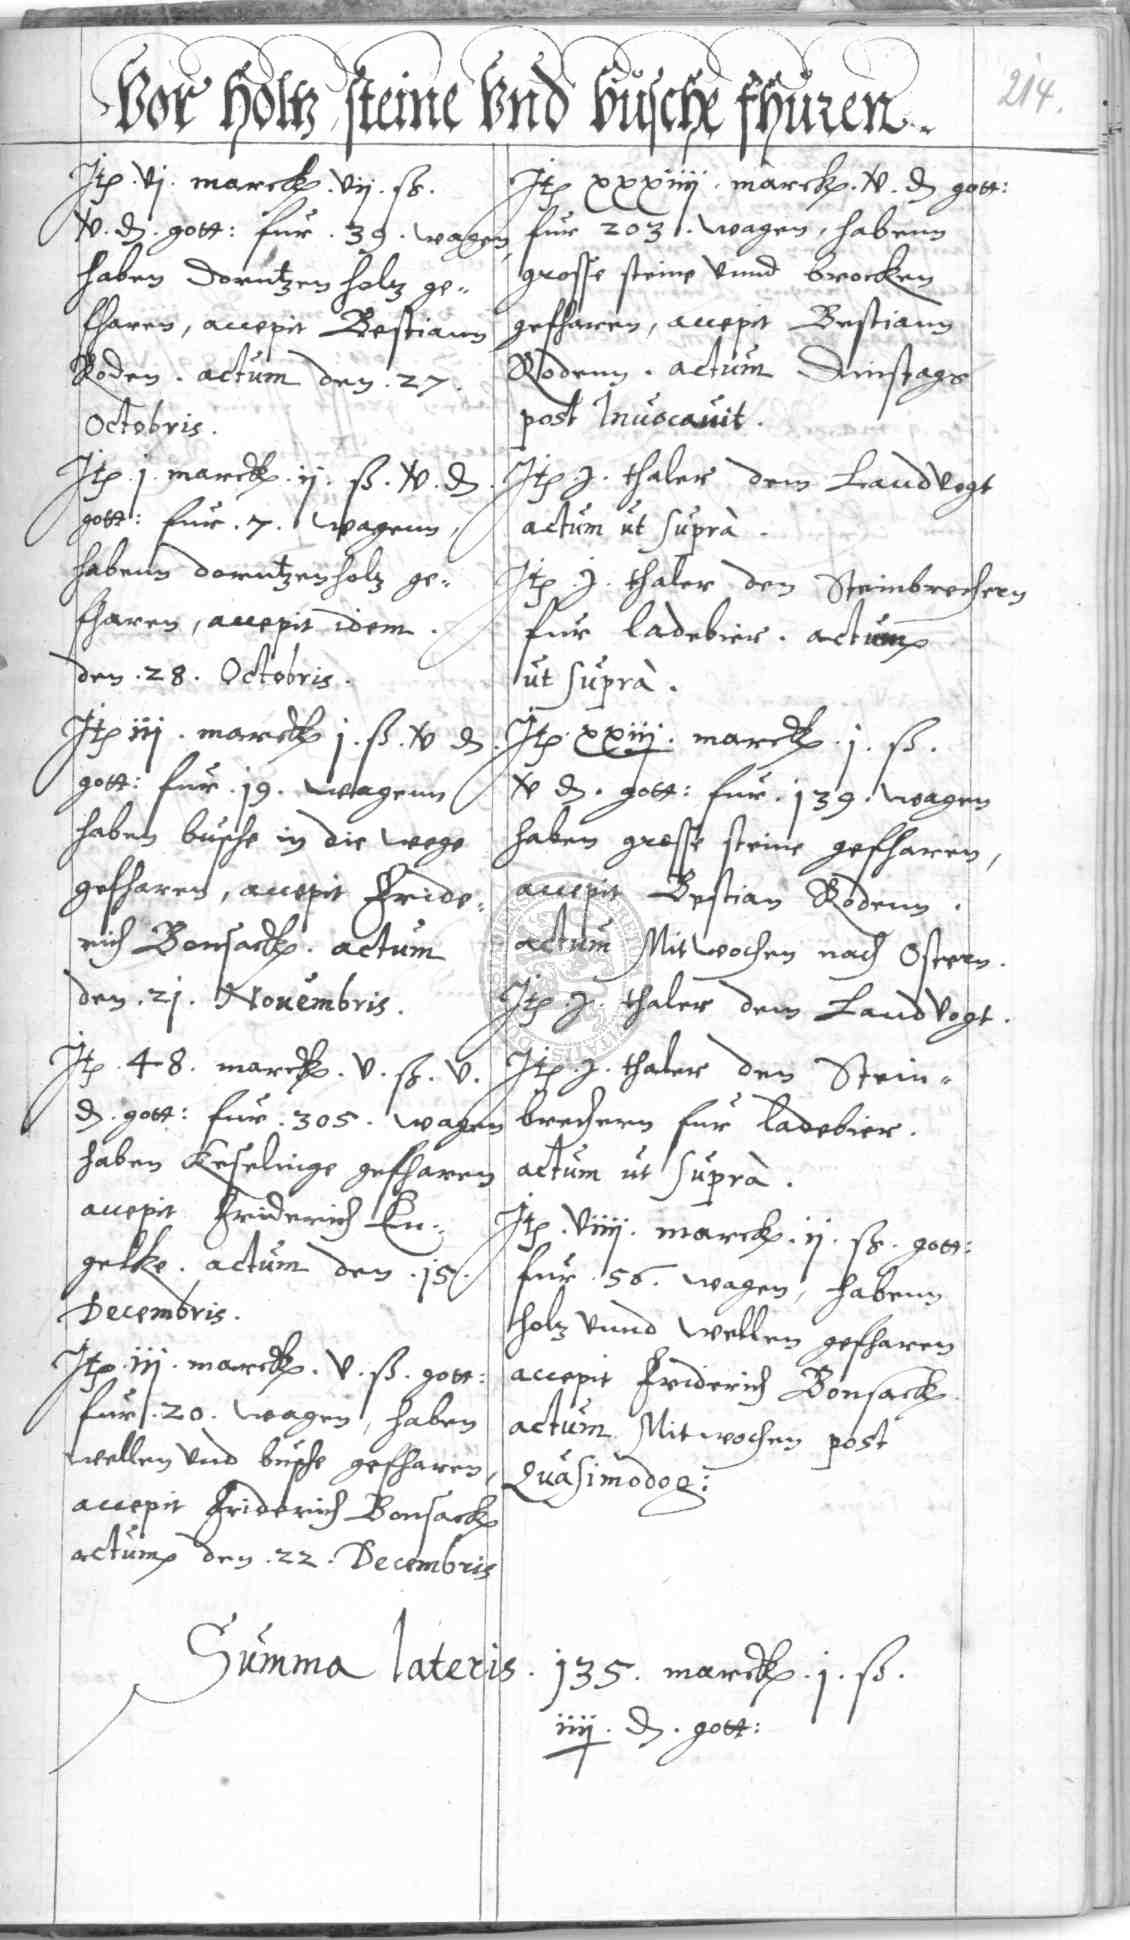 Vor holtz steine Vnd büsche fhüren..
214.
Itp. vj. marck. vij. ß.
v. d. gott: für. 39. wagen,
haben Dorntzen holtz ge„
fharen, accepit Bestiann
Roden. actüm den. 27.
Octobris.
Itp. j. marck. ij. ß. v. d.
gott: für. 7. wagenn,
habenn dorntzenholtz ge„
fharen, accepit idem.
den. 28. Octobris.
Itp iij. marck j. ß. v d.
gott: für. 19. wagenn
haben büsche in die wege
gefharen, accepit Fride„
rich Bonsack. actüm
den. 21. Nouembris.
Itp. 48. marck. v. ß. v.
d. gott: für. 305. wagen
haben Keselinge gefharen
accepit Friderich En„
gelke. actüm den. 15.
Decembris.
Itp. iij. marck. v. ß. gott:
für. 20. wagen, haben
wellen vnd büsche gefharen,
accepit Friderich Bonsack
actüm den. 22. Decembris
Itp xxxiiij. marck. v. d gott:
für 203. wagen, habenn
grosse steine vnnd brocken
gefharen, accepit Bestiann
Rodenn. actüm Dinstags
post Inuocauit.
Itp. j. thaler dem Landvogt
actüm üt süprà.
Itp. j. thaler den Steinbrechern
für ladebier. actüm
üt süprà.
Itp. xxiij. marck. j. ß.
v d. gott: für. 139. wagen
haben grosse steine gefharen,
accepit Bestian Rodenn.
actüm Mitwochen nach Ostern.
Itp. j. thaler dem Landvogt.
Itp. j. thaler den Stein„
brechern für ladebier.
actüm üt süprà.
Itp. viiij. marck. ij. ß. gott:
für. 56. wagen, habenn
holtz vnnd wellen gefharen
accepit Friderich Bonsack
actüm Mitwochen post
Qüasimodog:
Sümma lateris. 135. marck. j. ß.
iiij. d. gott: